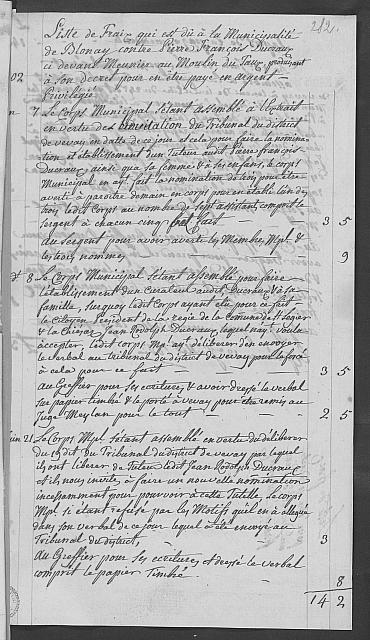 282.
Liste de Fraix qui est dû à la Municipalité
de Blonay contre Pierre François Ducraux
ci devant Meunier au Moulin du Faux, produisant
à son Decret pour en être payé en argent
Privilégié.
02
7 Le Corps Municipal s'étant assemblé à l'extrait
en vertu de la Tribunal du district
de vevay en datte de ce jour et cela pour faire la nomina-
tion et établissement d'un Tuteur audit Pierre françois
Ducraux ainsi que sa femme & à ses enfans, le corps
Municipal en ayt fait la nomination de trois pour être
averti à paroitre demain en corps pour en établir l'un des
trois ledit Corps au nombre de Sept assistant, comprit le
Sergent à chacun cinq fait 3 5
au Sergent pour avoir averti les Membres Mpl. &
les trois nommés 9
dt 8 Le Corps Municipal s'étant assemblé pour faire
l'établissement d'un Curateur audit Ducraux & à sa
famille, surquoy ledit Corps ayant élu pour ce fait
le citoyen President de la Regie de la Commune de St Legier
& la Chiésaz Jean Rodolph Ducraux, lequel n'ayt voulu
accepter, ledit corps Mpl. ayt déliberer d'en envoyer
le verbal au tribunal du district de vevay pour le forcé
à cela pour ce fait 3 5
au Greffier pour ses ecritures, & avoir dressé le verbal
sur papier timbré & le porté à vevay pour être remis au
Juge Meylan pour le tout 2 5
21 Le Corps Mpl. s'étant assemblé en vertu du déliberer
du 19 dit du Tribunal du district de vevay par lequel
ils ont liberer de Tuteur ledit Jean Rodolph Ducraux
et ils nous invite à faire un nouvelle nomination
incessamment pour pourvoir à cette Tutelle, le corps
Mpl. si étant refusé par les Motifs quil en à allegué
dans son verbal de ce jour lequel a été envoyé au
Tribunal du district, 3
au Greffier pour ses ecritures et dressé le verbal
comprit le papier Timbré 8
14 2